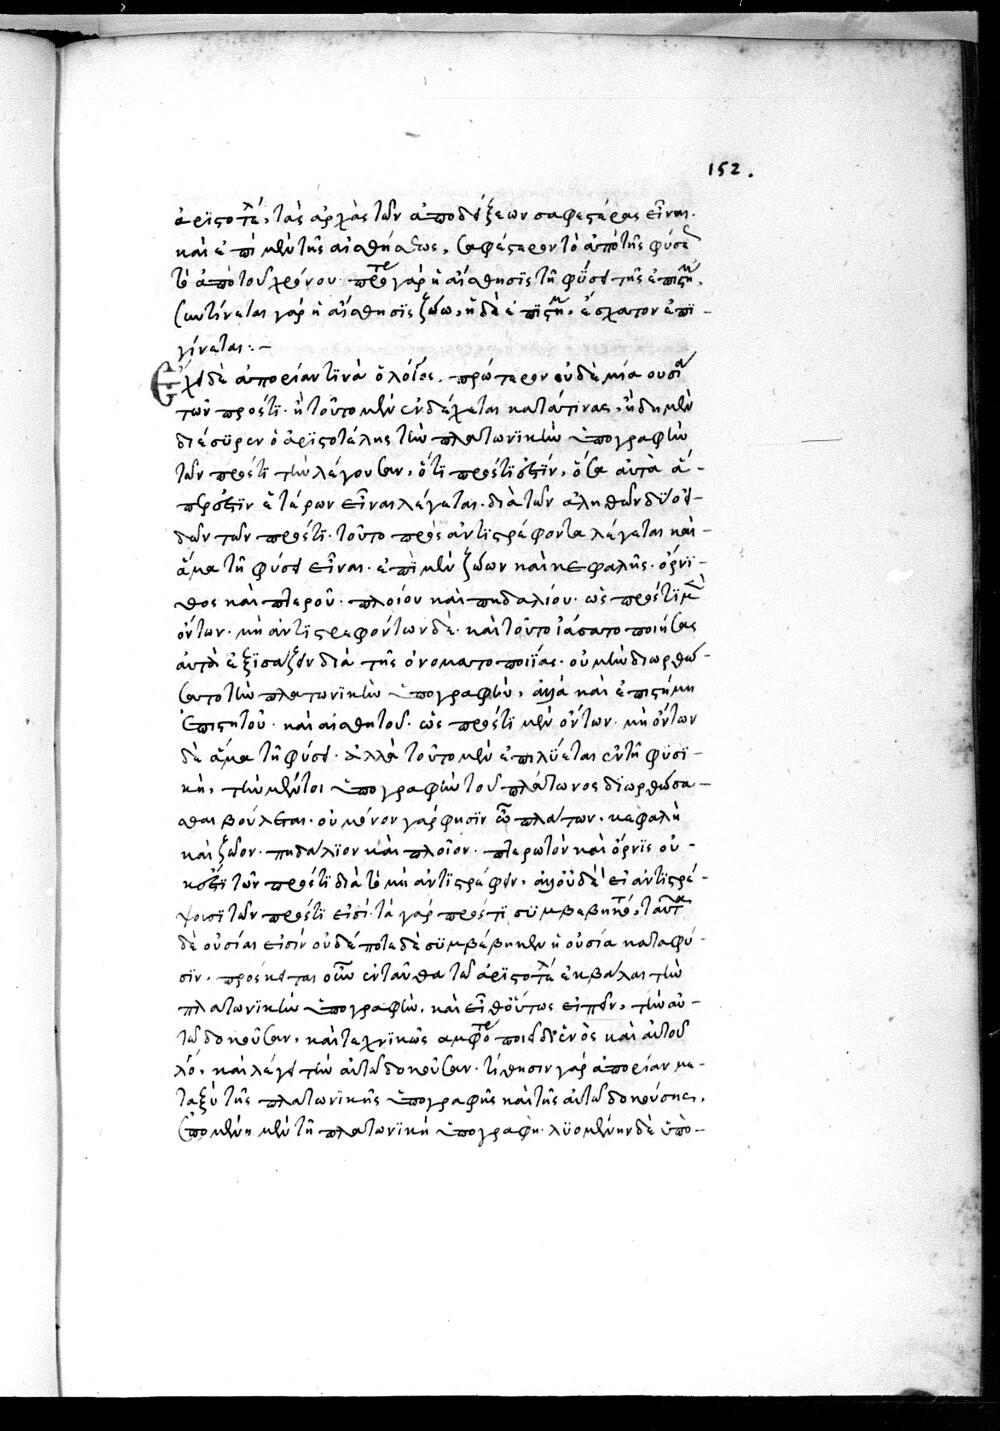 152.
ἀριστοτέ, τὰς ἀρχὰς τῶν ἀποδείξεων σαφεστέρας εἶναι.
καὶ ἐπὶ μὲν τῆς αἰσθήσεως, σαφέστερον τὸ ἀπὸ τῆς φύσε
τὸ ἀπὸ τοῦ χρόνου· προτε γὰρ ἡ αἴσθησις τῇ φύσει τῆς ἐπιστημ.
γὰρ ἡ αἴσθησις ζώω, ἡ δὲ ἐπιστημ. ἔσχατον ἐπι-
γίνεται:-
Ἔχει δὲ ἀπορίαν τινὰ ὁ λόγος. πρότερον οὐδὲ μία ουσια
τῶν πρός τι. ἢ τοῦτο μὲν ἐνδέχεται κατά τινας, ἤδη μὲν
διέσυρεν ὁ ἀριστοτέλης τὴν πλατωνικὴν ὑπογραφὴν
τῶν πρός τι τὴν λέγουσαν, ὅτι πρός τι ἐστίν, ὅσα αὐτὰ ἅ-
περ ἐστὶν ἑτέρων εἶναι λέγεται. διὰ τῶν ἀληθῶν δύο εἰ-
δῶν τῶν πρός τι. τοῦτο πρὸς ἀντιστρέφοντα λέγεται καὶ
ἅμα τῇ φύσει εἶναι. ἐπὶ μὲν ζώων καὶ κεφαλῆς. ὄρνι-
θος καὶ πτεροῦ. πλοίου καὶ πηδαλίου. ὡς πρός τι μὲν
ὄντων. μὴ ἀντιστρεφόντων δέ. καὶ τοῦτο ἰάσατο ποιήσας
αὐτὰ ἐξισάζειν διὰ τῆς ὀνοματοποιίας. οὐ μὴν διωρθώ-
σατο τὴν πλατωνικὴν ὑπογραφὴν, ἀλλὰ καὶ ἐπιστήμη
ἐπιστητοῦ. καὶ αἰσθητοῦ. ὡς πρός τι μὲν ὄντων. μὴ ὄντων
δὲ ἅμα τῇ φύσει. ἀλλὰ τοῦτο μὲν ἐπιλύεται ἐν τῇ φυσι-
κῇ, τὴν μέντοι ὑπογραφὴν τοῦ πλάτωνος διωρθώσα-
σθαι βούλεται. οὐ μόνον γάρ φησιν ὦ πλάτων. κεφαλὴ
καὶ ζῶον. πηδάλιον καὶ πλοῖον. πτερωτὸν καὶ ὄρνις οὐ-
κ ἔστι τῶν πρός τι διὰ τὸ μὴ ἀντιστρέφειν. ἀλλ' οὐδὲ εἰ ἀντιστρέ-
φοισι τῶν πρός τι εἰσί· τὰ γάρ πρός τι συμβεβηκό, ταῦτα
δὲ οὐσίαι εἰσίν οὐδέποτε δὲ συμβέβηκεν ἡ οὐσία κατα φύ-
σιν. πρόκειται οὖν ἐνταῦθα τῶ ἀριστοτέλ ἐκβάλαι τὴν
πλατωνικὴν ὑπογραφὴν. καὶ εἶθ' οὕτως εἰπεῖν, τὴν αὐ-
τῶ δοκοῦσαν, καὶ τεχνικῶς ἀμφότε ποιεῖ δι' ἑνὸς καὶ αὐτοῦ
λό. καὶ λέγει τὴν αὐτῶ δοκοῦσαν. τίθησιν γὰρ ἀπορίαν με-
ταξὺ τῆς πλατωνικῆς ὑπογραφῆς καὶ τῆς αὐτῶ δοκούσης,
ἑπομένην μὲν τῇ πλατωνικῇ ὑπογραφῇ. λυομένην δὲ ὑπὸ-